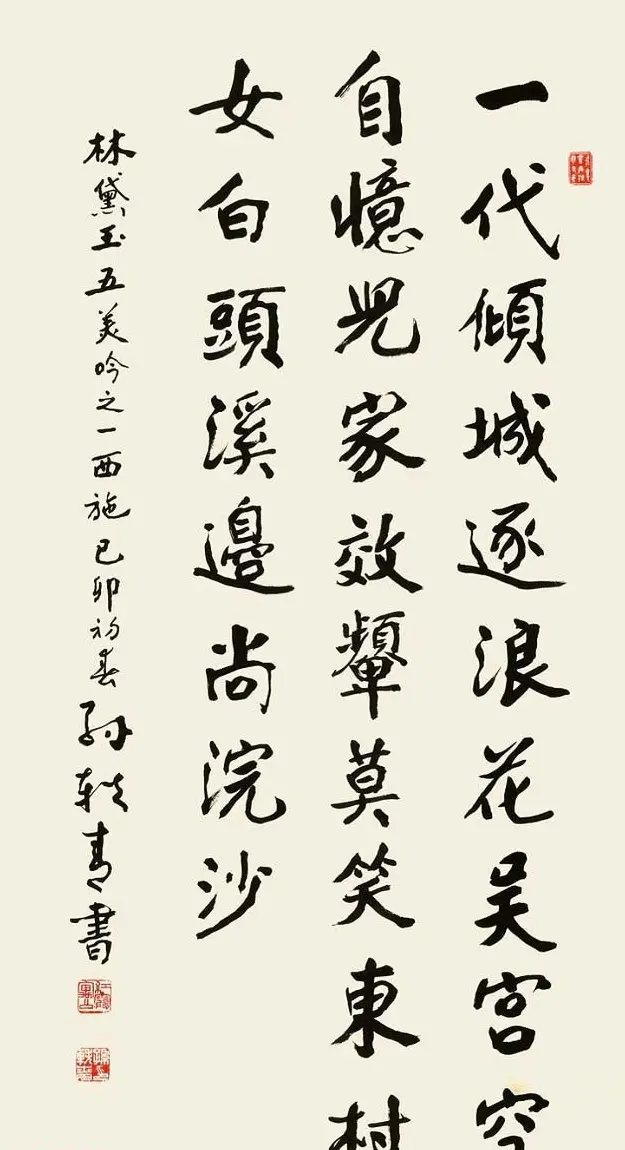 一代傾城逐浪花吴宫空
自憶兒家效顰莫笑東村
女白頭溪邊尚浣沙
林黛玉五美吟之一西施己卯初春孫軼青書